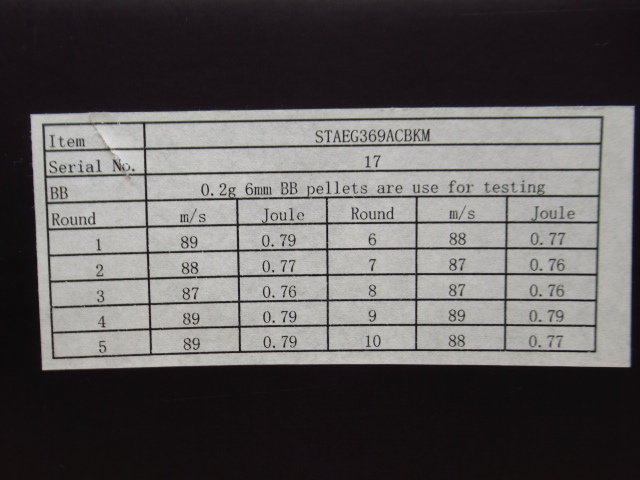 Item STAEG369ACBKM
Serial No. 17
BB 0.2g 6mm BB pellets are use for testing
Round m/s Joule Round m/s Joule
1 89 0.79 6 88 0.77
2 88 0.77 7 87 0.76
3 87 0.76 8 87 0.76
4 89 0.79 9 89 0.79
5 89 0.79 10 88 0.77